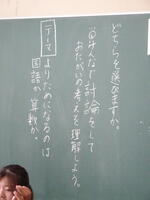 どちらを選びますか。
◎みんなで討論をして
おたがいの考えを理解しよう。
テーマ よりためになるのは
国語か算数か。